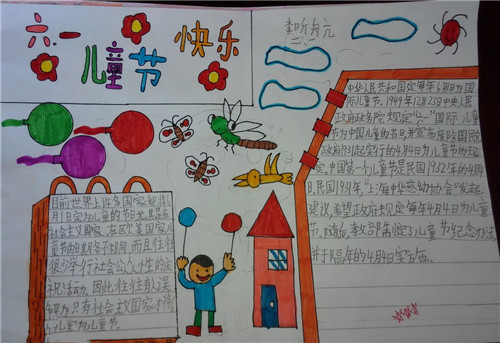 六一
儿童节
快乐
中华人民共和国定每年6月1日为国
际儿童节,1949年12月23日中央人民
政府政务院规定“六一”国际儿童
节为中国儿童的节日并宣布废除国民
政府1931起实行的4月4日为儿童节的规
定,中国第一个儿童节是民国1932年的4月4
日民国1931年,“上海中华慈幼协会”发起
建议,希望政府规定每年4月4日为儿童
节,随后,教育部制定了儿童节纪念办法
并于隔年的4月4日实施。
目前世界上许多国家都将6
月1日定为儿童的节日,尤其是
社会主义国家,在欧美国家儿
童节的日期各不相同,而且往往
很少举行社会公众性的庆
祝活动,因此往往有人误
以为只有社会主义国家才将6
月1日定为儿童节